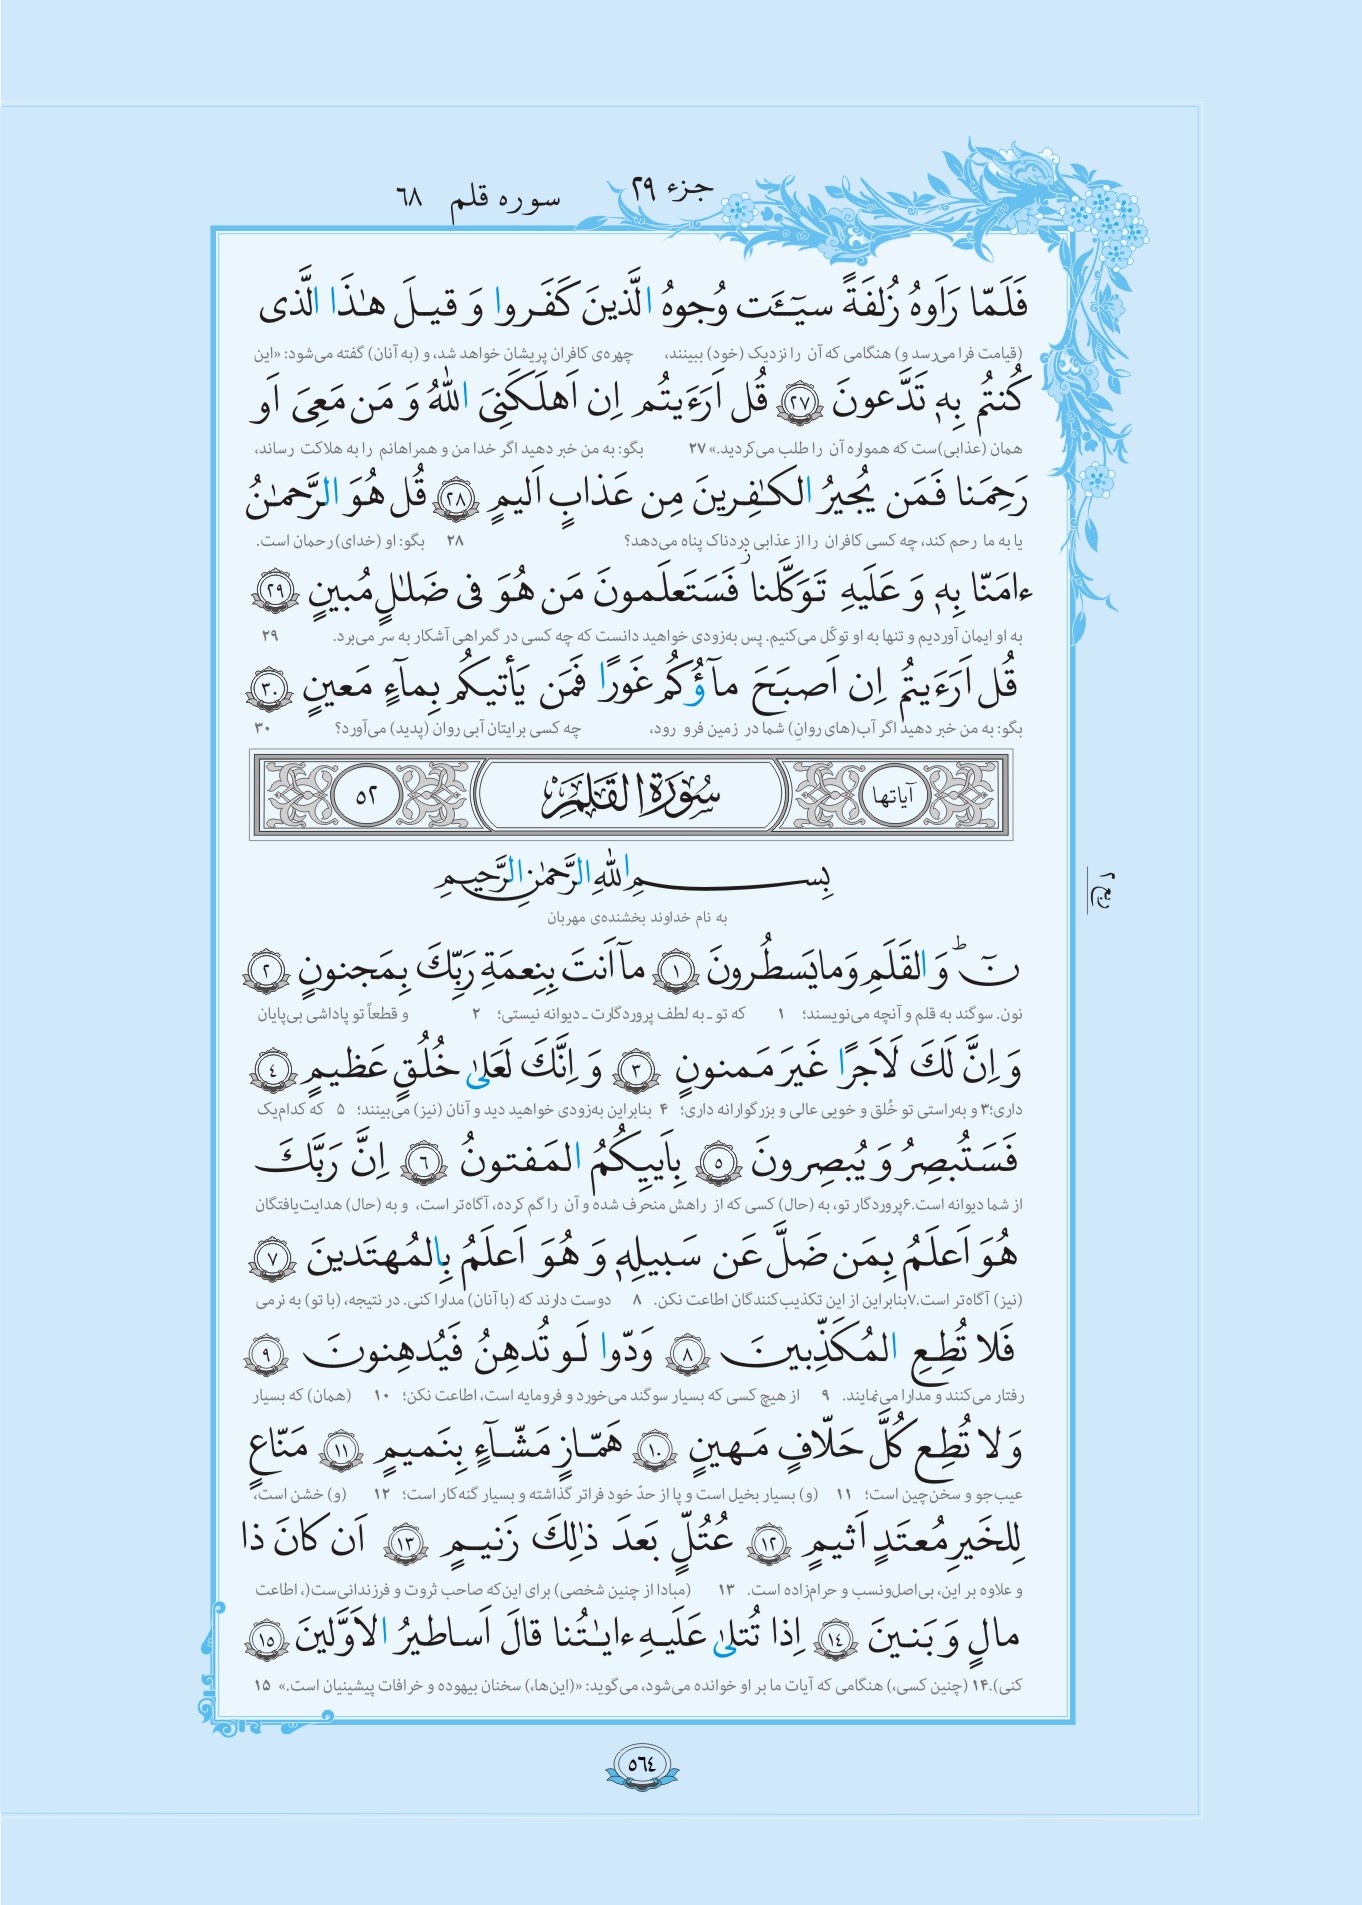 جزء ۲۹
سوره قلم ۶۸
فَلَمّا رَاَوهُ زُلفَةً سيـٓـَٔت وُجوهُ الَّذينَ كَفَروا وَ قيلَ هٰذَا الَّذى
(قیامت فرا می‌رسد و) هنگامی که آن را نزدیک (خود) ببینند، چهره‌ی کافران پریشان خواهد شد، و (به آنان) گفته می‌شود: «این
كُنتُم بِهٖ تَدَّعونَ ﴿٢٧﴾ قُل اَرَءَيتُم اِن اَهلَكَنِىَ اللّٰهُ وَ مَن مَعِىَ اَو
همان (عذابی)ست که همواره آن را طلب می‌کردید.» ۲۷ بگو: به من خبر دهید اگر خدا من و همراهانم را به هلاکت رساند،
رَحِمَنا فَمَن يُجيرُ الكٰفِرينَ مِن عَذابٍ اَليمٍ ﴿٢٨﴾ قُل هُوَ الرَّحمٰنُ
یا به ما رحم کند، چه کسی کافران را از عذابی دردناک پناه می‌دهد؟ ۲۸ بگو: او (خدای) رحمان است.
ءامَنّا بِهٖ وَ عَلَيهِ تَوَكَّلنا ز فَسَتَعلَمونَ مَن هُوَ فى ضَلٰلٍ مُبينٍ ﴿٢٩﴾
به او ایمان آوردیم و تنها به او توکّل می‌کنیم. پس به‌زودی خواهید دانست که چه کسی در گمراهی آشکار به سر می‌برد. ۲۹
قُل اَرَءَيتُم اِن اَصبَحَ مآؤُكُم غَورًا فَمَن يَأتيكُم بِمآءٍ مَعينٍ ﴿٣٠﴾
بگو: به من خبر دهید اگر آب(های روانِ) شما در زمین فرو رود، چه کسی برایتان آبی روان (پدید) می‌آورد؟ ۳۰
آياتها سُورَةُ القَلَمِ ٥٢
بِسمِ اللّٰهِ الرَّحمٰنِ الرَّحيمِ
به نام خداوند بخشنده‌ی مهربان
ربع ٢
نٓ ط وَ القَلَمِ وَ ما يَسطُرونَ ﴿١﴾ مآ اَنتَ بِنِعمَةِ رَبِّكَ بِمَجنونٍ ﴿٢﴾
نون. سوگند به قلم و آنچه می‌نویسند؛ ۱ که تو ـ به لطف پروردگارت ـ دیوانه نیستی؛ ۲ و قطعاً تو پاداشی بی‌پایان
وَ اِنَّ لَكَ لَاَجرًا غَيرَ مَمنونٍ ﴿٣﴾ وَ اِنَّكَ لَعَلىٰ خُلُقٍ عَظيمٍ ﴿٤﴾
داری؛۳ و به‌راستی تو خُلق و خویی عالی و بزرگوارانه داری؛ ۴ بنابراین به‌زودی خواهید دید و آنان (نیز) می‌بینند؛ ۵ که کدام‌یک
فَسَتُبصِرُ وَ يُبصِرونَ ﴿٥﴾ بِاَييِكُمُ المَفتونُ ﴿٦﴾ اِنَّ رَبَّكَ
از شما دیوانه است.۶پروردگار تو، به (حال) کسی که از راهش منحرف شده و آن را گم کرده، آگاه‌تر است، و به (حال) هدایت‌یافتگان
هُوَ اَعلَمُ بِمَن ضَلَّ عَن سَبيلِهٖ وَ هُوَ اَعلَمُ بِالمُهتَدينَ ﴿٧﴾
(نیز) آگاه‌تر است.۷بنابراین از این تکذیب‌کنندگان اطاعت نکن. ۸ دوست دارند که (با آنان) مدارا کنی. در نتیجه، (با تو) به نرمی
فَلا تُطِعِ المُكَذِّبينَ ﴿٨﴾ وَدّوا لَو تُدهِنُ فَيُدهِنونَ ﴿٩﴾
رفتار می‌کنند و مدارا می‌نمایند. ۹ از هیچ کسی که بسیار سوگند می‌خورد و فرومایه است، اطاعت نکن؛ ۱۰ (همان) که بسیار
وَ لا تُطِع كُلَّ حَلّافٍ مَهينٍ ﴿١٠﴾ هَمّازٍ مَشّآءٍ بِنَميمٍ ﴿١١﴾ مَنّاعٍ
عیب‌جو و سخن‌چین است؛ ۱۱ (و) بسیار بخیل است و پا از حدّ خود فراتر گذاشته و بسیار گنه‌کار است؛ ۱۲ (و) خشن است،
لِلخَيرِ مُعتَدٍ اَثيمٍ ﴿١٢﴾ عُتُلٍّ بَعدَ ذٰلِكَ زَنيمٍ ﴿١٣﴾ اَن كانَ ذا
و علاوه بر این، بی‌اصل‌ونسب و حرام‌زاده است. ۱۳ (مبادا از چنین شخصی) برای این‌که صاحب ثروت و فرزندانی‌ست(، اطاعت
مالٍ وَ بَنينَ ﴿١٤﴾ اِذا تُتلىٰ عَلَيهِ ءايٰتُنا قالَ اَساطيرُ الاَوَّلينَ ﴿١٥﴾
کنی).۱۴ (چنین کسی،) هنگامی که آیات ما بر او خوانده می‌شود، می‌گوید: «(این‌ها،) سخنان بیهوده و خرافات پیشینیان است.» ۱۵
٥٦٤